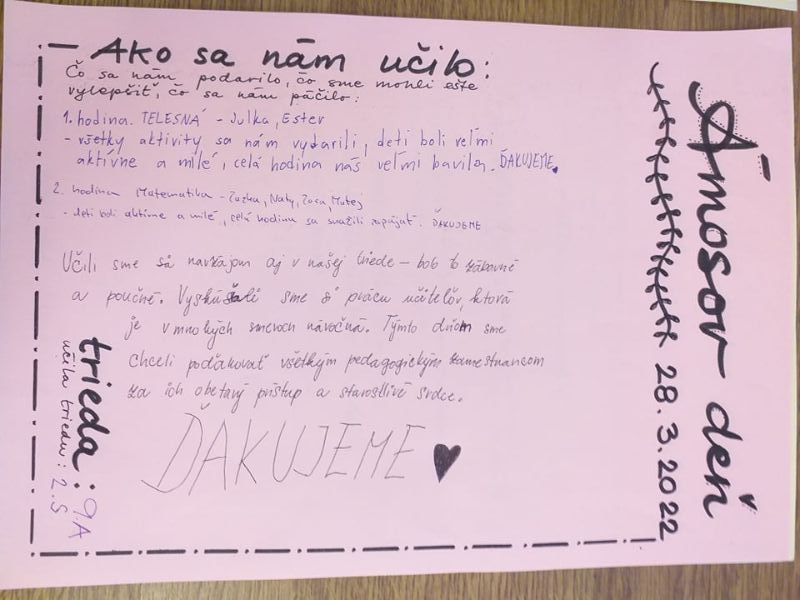 Ámosov deň
28.3.2022
Ako sa nám učilo:
Čo sa nám podarilo, čo sme mohli ešte
vylepšiť, čo sa nám páčilo:
1. hodina. TELESNÁ - Julka, Ester
- všetky aktivity sa nám vydarili, deti boli veľmi
aktívne a milé, celá hodina nás veľmi bavila. ĎAKUJEME
2. hodina Matematika - Zuzka, Naty, Zora, Matej
- deti boli aktívne a milé, celú hodinu sa snažili zapájať. ĎAKUJEME
Učili sme sa navzájom aj v našej triede - bolo to zábavné
a poučné. Vyskúšali sme si prácu učiteľov, ktorá
je v mnohých smeroch náročná. Týmto dňom sme
chceli poďakovať všetkým pedagogickým zamestnancom
za ich obetavý prístup a starostlivé srdce.
ĎAKUJEME
trieda: 9.A
učila triedu: 2.S